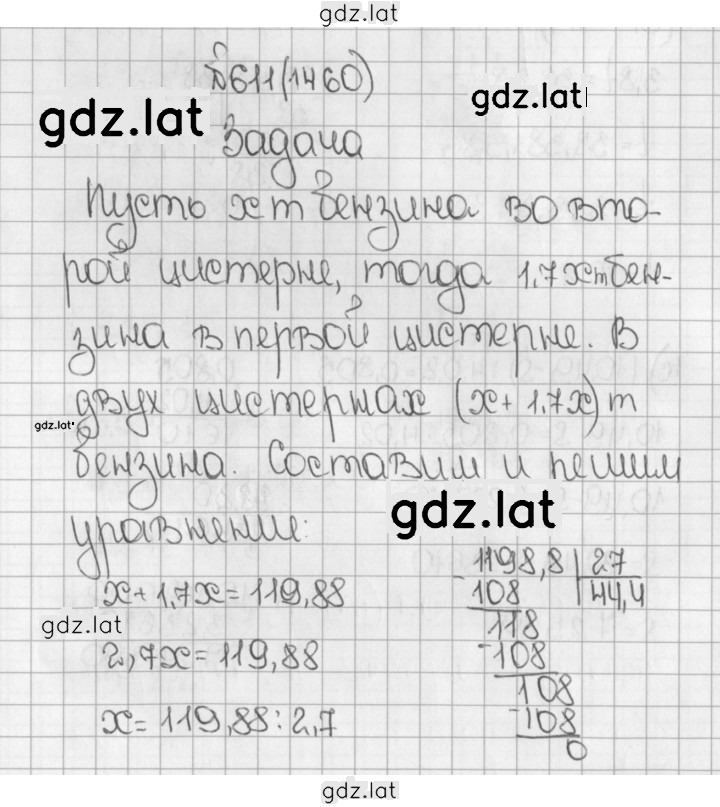 gdz.lat
№611(1460)
gdz.lat
gdz.lat
Задача
Пусть x т бензина во вто-
рой цистерне, тогда 1,7x т бен-
зина в первой цистерне. В
двух цистернах (x+1,7x) т
gdz.lat
бензина. Составим и решим
gdz.lat
уравнение:
x+1,7x=119,88
gdz.lat
2,7x=119,88
x=119,88:2,7
1198,8 | 27
-108 | 44,4
118
-108
108
-108
0
gdz.lat